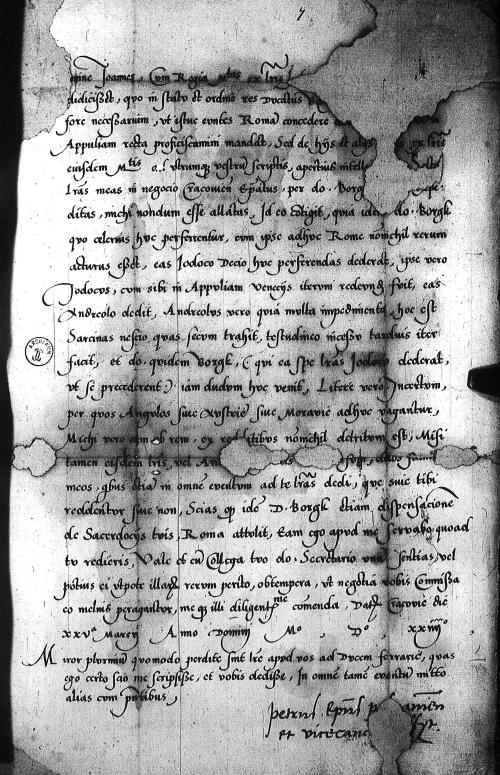 7
mine Joannes, Cum Regia Mtas ex lris
didicisset, quo in statu et ordine res Ducatus
fore necessarium, ut istuc euntes Romā concedere
Appuliam recta proficiscamini mandat, Sed de hijs et alijs ex lris
eiusdem Mtis ad utrumque vestrum scriptis, apertius
lras meas in negocio Cracovien Epatus, per do. Borgk
ditas, michi nondum esse allatas, Id eo cōtigit, quia idem do. Borgk
quo celerius huc perferrentur, cum ipse adhuc Rome nonnichil rerum
acturus esset, eas Jodoco Decio huc perferendas dederat, ipse vero
Jodocus, cum sibi in Appuliam Venecijs iterum redeundū fuit, eas
Andreolo dedit, Andreolus vero quia multa impedimenta, hoc est
Sarcinas nescio quas secum trahit, testudineo incessu tardius iter
facit, et do. quidem Borgk, (qui ea spe lras Jodoco dederat,
ut se precederent) iam dudum huc venit, Litere vero Incertum,
per quos Angulos sive Austrie sive Moravie adhuc vagantur,
Michi vero cum ob rem, ex retibus nonnichil detritum est, Misi
tamen eisdem lris, vel An
meos, quibus etiā in omnē eventum ad te lras dedi, que sive tibi
reddentur sive non, Scias quod idē D. Borgk etiam, dispensacionē
de Sacerdocijs tuis, Roma attulit, Eam ego apud me servabo quoad
tu redieris, Vale et cū Collega tuo do. Secretario una sentias, vel
potius ei utpote illarum rerum perito, obtempera, ut negotia vobis Commissa
eo melius peragantur, me quoque illi diligentme comenda, Datum Cracovie die
xxva Marcij Anno Domini Mo, Do, xxiiijo
Miror plurimum quomodo perdite sint lre apud vos ad Ducem Ferrarie, quas
ego certo scio me scripsisse, et vobis dedisse, In omnē tamē eventum mitto
alias cum prītibus,
Petrus Epus
et vicecanc